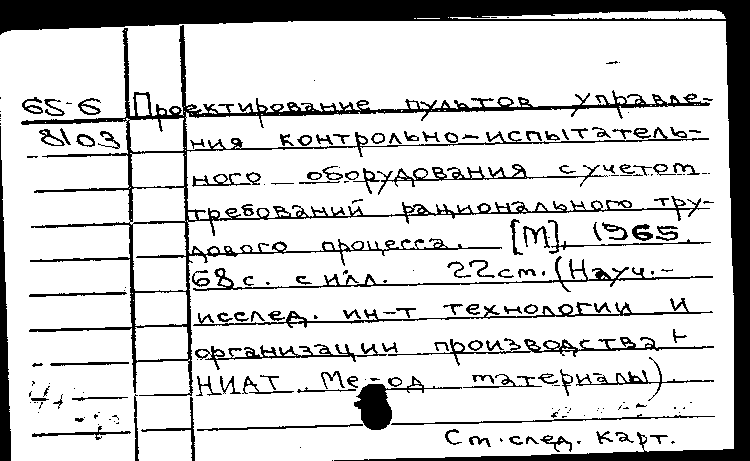 65-6 Проектирование пультов управле-
8103 ния контрольно-испытатель-
ного оборудования с учетом
требований рационального тру-
дового процесса. [М], 1965.
68 с. с илл. 22 см. (Науч.-
исслед. ин-т технологии и
организации производства
НИАТ. Метод. материалы).
См. след. карт.